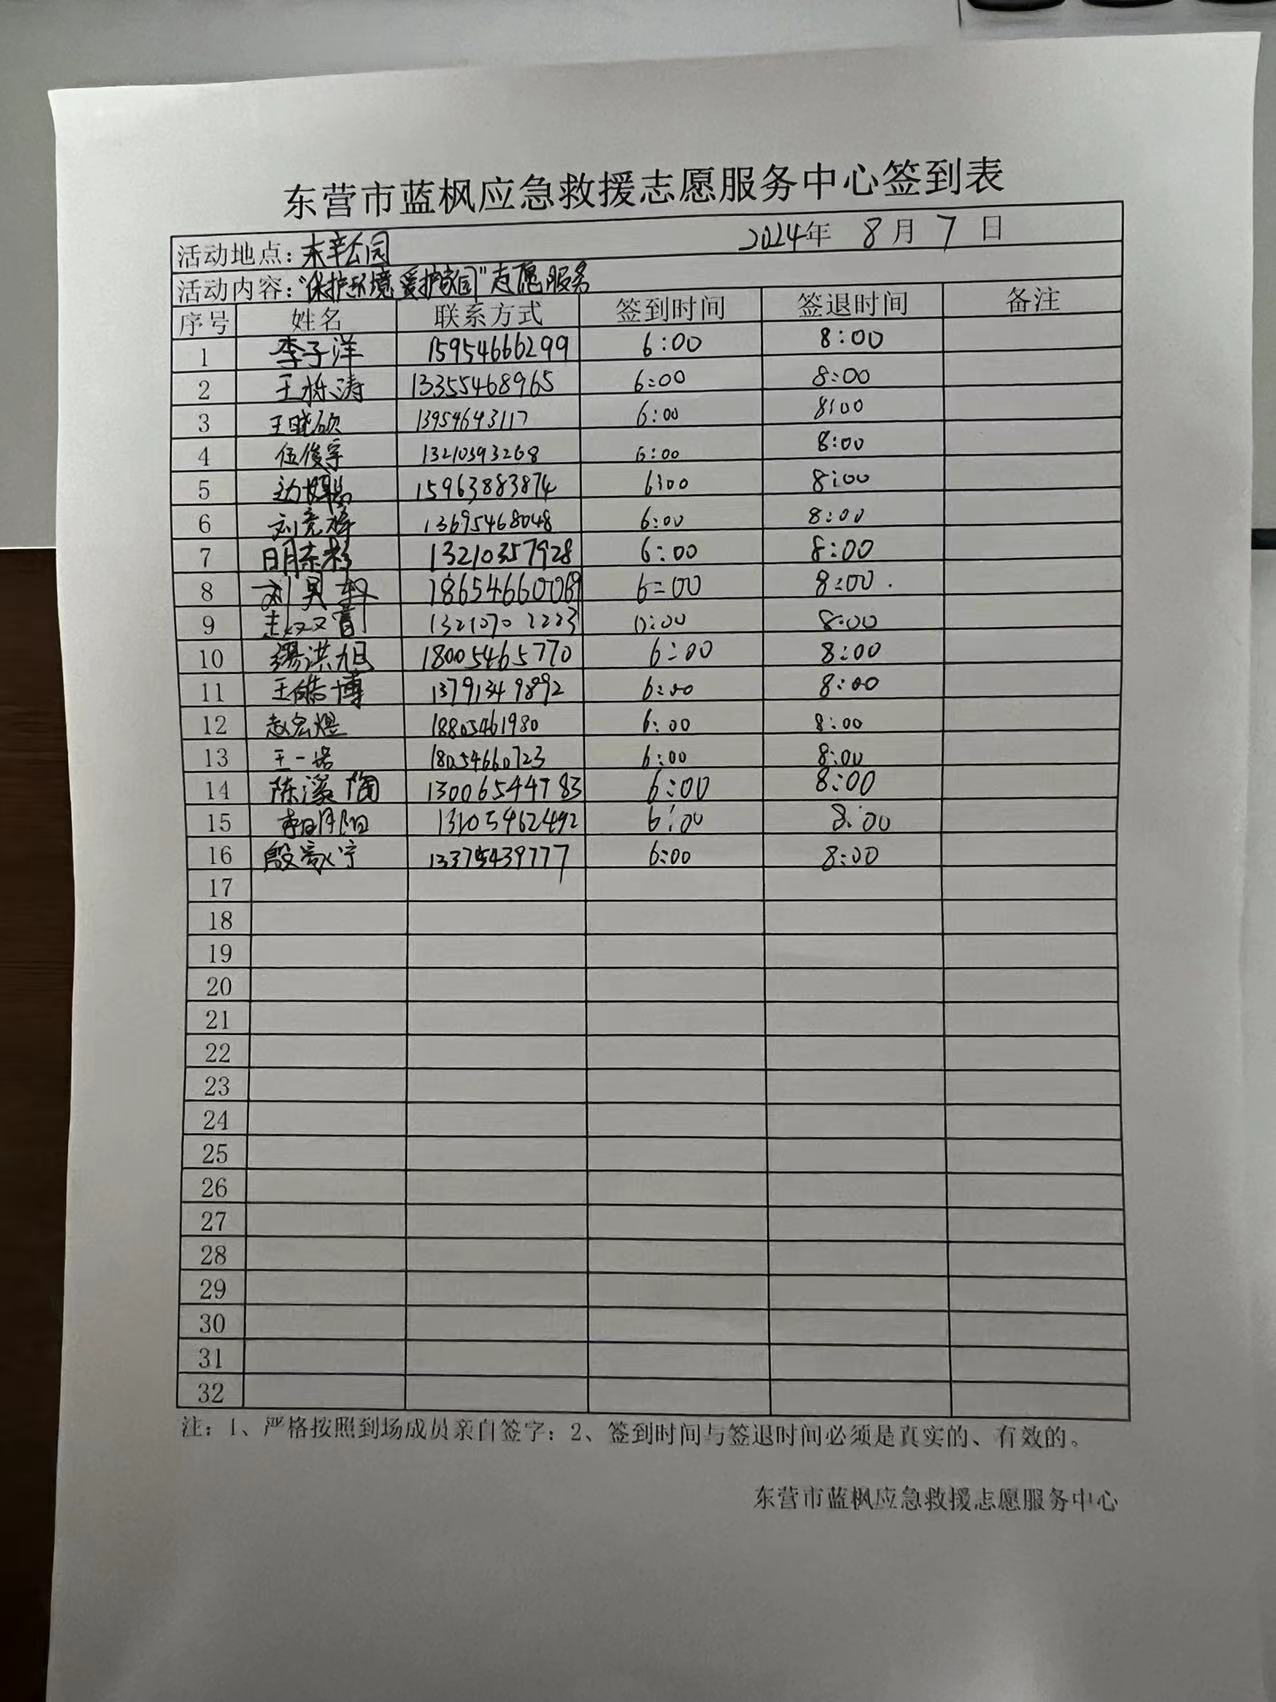 东营市蓝枫应急救援志愿服务中心签到表
活动地点：东辛公园 2024年 8月 7日
活动内容："保护环境 爱护家园"志愿服务
序号 姓名 联系方式 签到时间 签退时间 备注
1 李子洋 15954666299 6:00 8:00
2 王栎涛 13355468965 6:00 8:00
3 王晓硕 13954643117 6:00 8:00
4 伍俊宇 13210393268 6:00 8:00
5 15963883874 6:00 8:00
6 刘竞择 13695468048 6:00 8:00
7 明东杉 13210357928 6:00 8:00
8 刘昊轩 18654660069 6:00 8:00
9 1321070 2223 8:00
10 洪旭 18005465770 6:00 8:00
11 王皓博 13791349892 6:00 8:00
12 赵宏煜 18805461980 6:00 8:00
13 王一诺 18054660723 6:00 8:00
14 陈溪陶 13006544783 6:00 8:00
15 13105462492 6:00 8:00
16 殷 宁 13375439777 6:00 8:00
17
18
19
20
21
22
23
24
25
26
27
28
29
30
31
32
注：1、严格按照到场成员亲自签字；2、签到时间与签退时间必须是真实的、有效的。
东营市蓝枫应急救援志愿服务中心